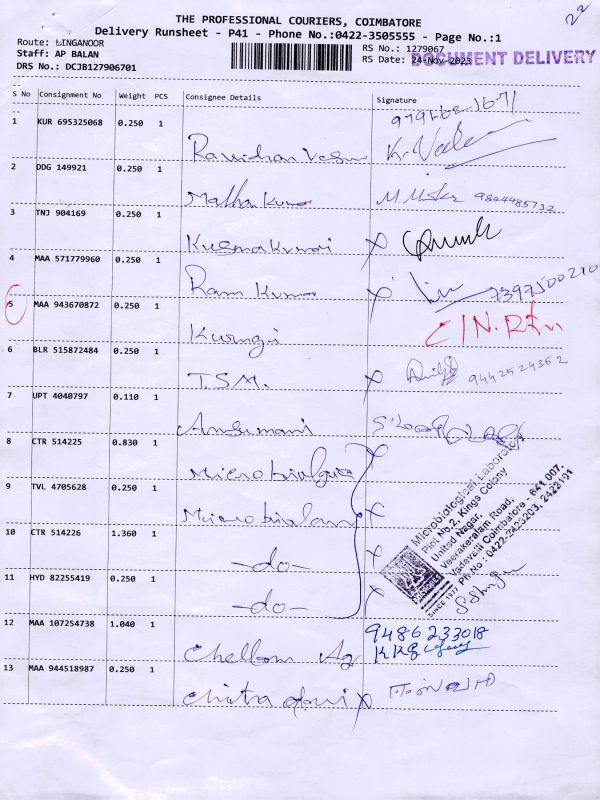 22
THE PROFESSIONAL COURIERS, COIMBATORE
Delivery Runsheet - P41 - Phone No.:0422-3505555 - Page No.:1
Route: LINGANOOR
Staff: AP BALAN
DRS No.: DCJB127906701
RS No.: 1279067
RS Date: 24-Nov-2023
DOCUMENT DELIVERY
S No Consignment No Weight PCS Consignee Details Signature
1 KUR 695325068 0.250 1
2 DDG 149921 0.250 1
Mathu Kumar 9894485732
3 TNJ 904169 0.250 1
Krishnakumari X
4 MAA 571779960 0.250 1
Ram Kumar X 7397500210
5 MAA 943670872 0.250 1
Kuringi C/N. Rtn
6 BLR 515872484 0.250 1
T.S.M. X 9442524352
7 UPT 4040797 0.110 1
Angumani
8 CTR 514225 0.830 1
X
9 TVL 4705628 0.250 1
X
10 CTR 514226 1.360 1
-do- X
11 HYD 82255419 0.250 1
-do- X
Microbiological Laboratory
Plot No.2, Kings Colony
United Nagar,
Veerakeralam Road,
Vadavalli Coimbatore - 641 007.
Ph.No : 0422-2423203, 2423191
SINCE 1977
12 MAA 107254738 1.040 1
Chellam Ag 9486233018
13 MAA 944518987 0.250 1
Chitra devi X